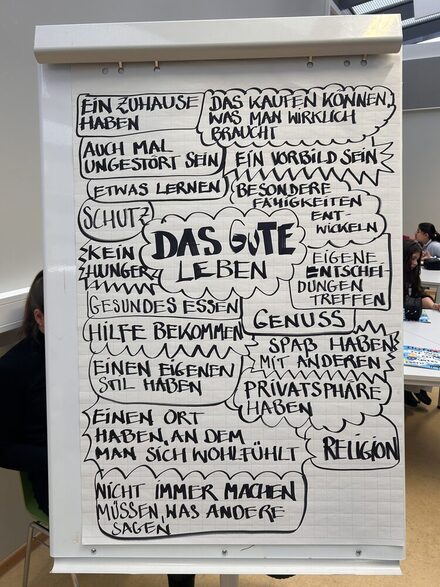 EIN ZUHAUSE
HABEN
DAS KAUFEN KÖNNEN,
WAS MAN WIRKLICH
BRAUCHT
AUCH MAL
UNGESTÖRT SEIN
EIN VORBILD SEIN
ETWAS LERNEN
BESONDERE
FÄHIGKEITEN
ENT-
WICKELN
SCHUTZ
DAS GUTE
LEBEN
KEIN
HUNGER
EIGENE
ENTSCHEI-
DUNGEN
TREFFEN
GESUNDES ESSEN
GENUSS
HILFE BEKOMMEN
SPAß HABEN
MIT ANDEREN
EINEN EIGENEN
STIL HABEN
PRIVATSPHÄRE
HABEN
EINEN ORT
HABEN, AN DEM
MAN SICH WOHLFÜHLT
RELIGION
NICHT IMMER MACHEN
MÜSSEN, WAS ANDERE
SAGEN